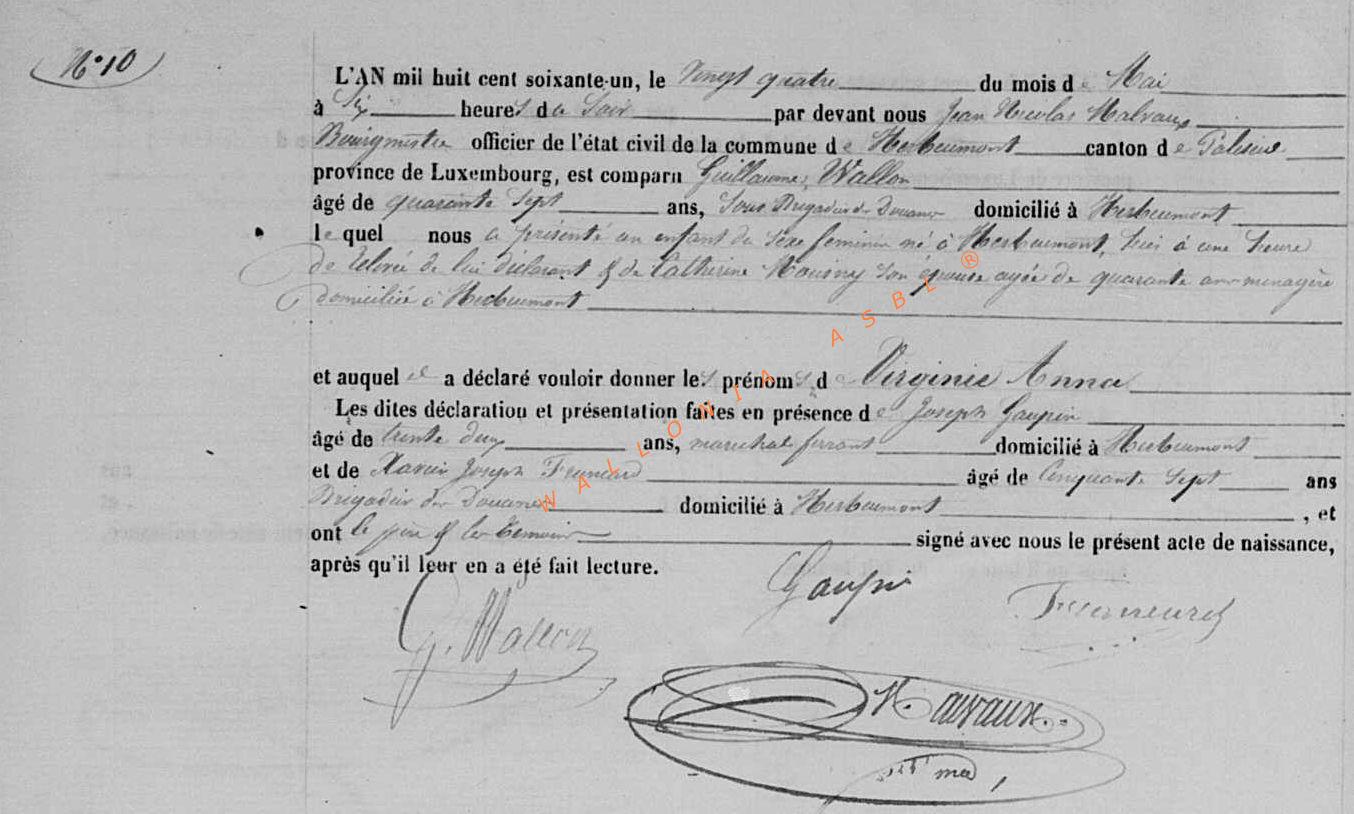 N° 10
L'AN mil huit cent soixante-un, le Vingt quatre du mois de Mai
à Six heures du Soir par devant nous Jean Nicolas Malvaux
Bourgmestre officier de l'état civil de la commune de Herbeumont canton de Paliseul
province de Luxembourg, est comparu Guillaume Wallon
âgé de quarante Sept ans, Sous Brigadier des Douanes domicilié à Herbeumont
le quel nous a présenté un enfant du Sexe feminin né à Herbeumont, hier à une heure
de relevée de lui déclarant & de Catherine son épouse agée de quarante ans menagère
domiciliée à Herbeumont
et auquel il a déclaré vouloir donner les prénoms de Virginie Anna
Les dites déclaration et présentation faites en présence de Joseph Gaupin
âgé de trente deux ans, marechal ferrant domicilié à Herbeumont
et de Xavier Joseph âgé de Cinquante Sept ans
Brigadier des Douanes domicilié à Herbeumont, et
ont le père & les temoins signé avec nous le présent acte de naissance,
après qu'il leur en a été fait lecture.
Gaupin
G. Wallon
N. Malvaux
WALLONIA ASBL ®